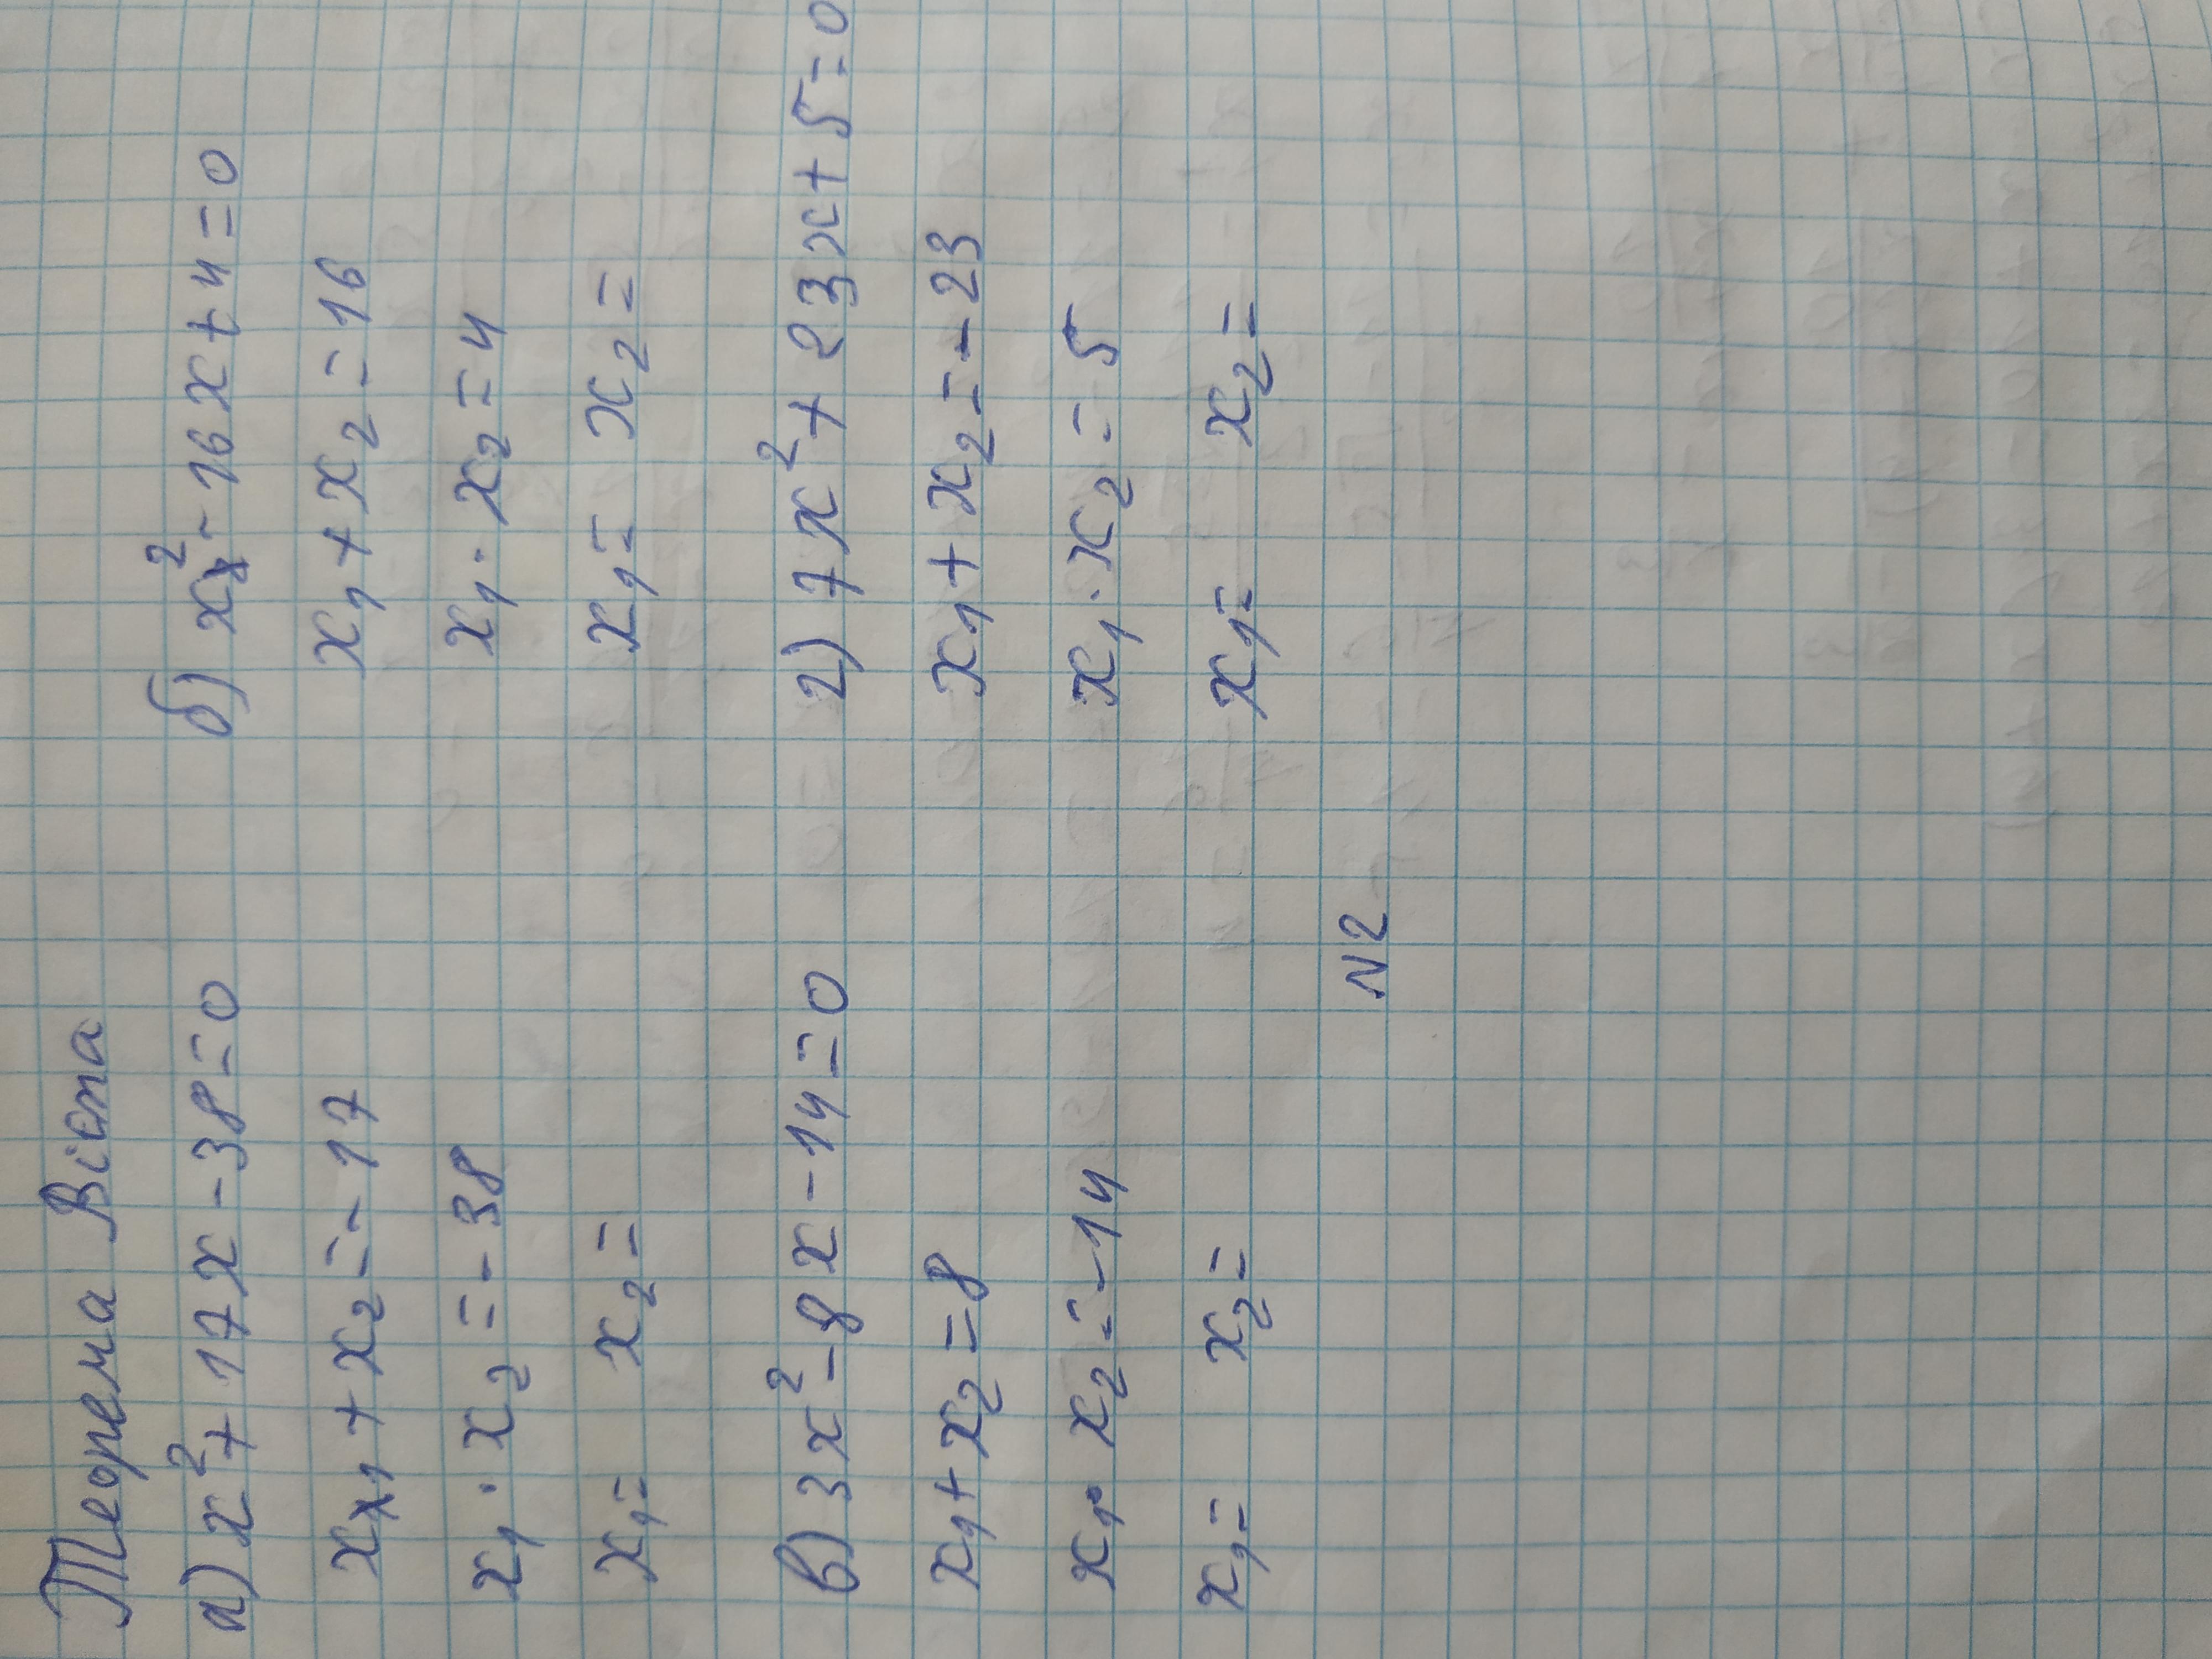 Теорема Вієта
а) x²+17x-38=0
x₁+x₂=-17
x₁·x₂=-38
x₁= x₂=
б) x²-16x+4=0
x₁+x₂=16
x₁·x₂=4
x₁= x₂=
в) 3x²-8x-14=0
x₁+x₂=8
x₁·x₂=-14
x₁= x₂=
г) 7x²+23x+5=0
x₁+x₂=-23
x₁·x₂=5
x₁= x₂=
N2